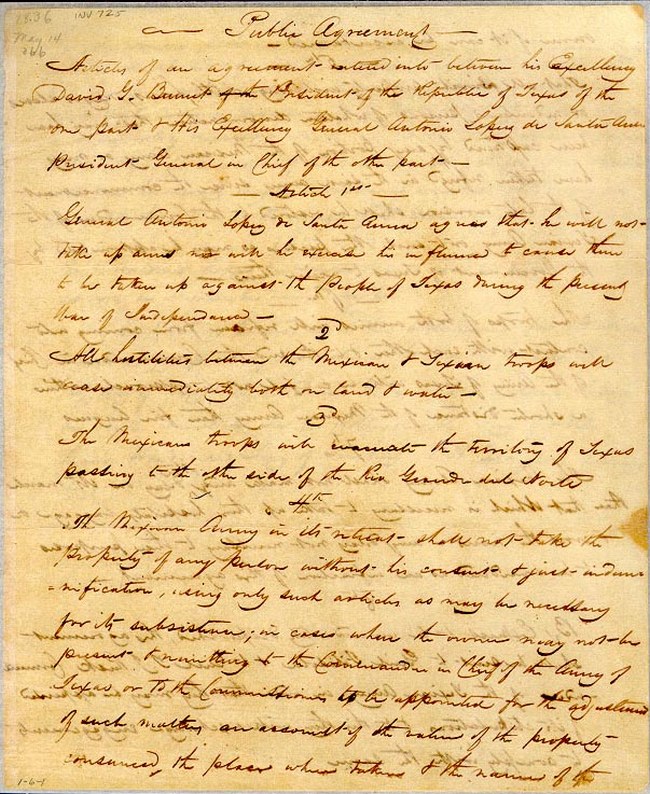 1836
May 14
266
INV 725
Public Agreement
Articles of an agreement entered into between his Excellency
David G. Burnet of the President of the Republic of Texas of the
one part & His Excellency General Antonio Lopez de Santa Anna
President General in Chief of the other part —
Article 1st
General Antonio Lopez de Santa Anna agrees that he will not
take up arms nor will he exercise his influence to cause them
to be taken up against the People of Texas during the present
War of Independence —
2
All hostilities between the Mexican & Texian troops will
cease immediately both on land & water —
3
The Mexican troops will evacuate the territory of Texas
passing to the other side of the Rio Grande del Norte
4th
The Mexican Army in its retreat shall not take the
property of any person without his consent & just indem
=nification, using only such articles as may be necessary
for its subsistence, in cases where the owner may not be
present & remitting to the Commander in Chief of the Army of
Texas or to the Commissioner to be appointed for the adjustment
of such matters an account of the value of the property
consumed, the place where taken & the name of the
1-6-1